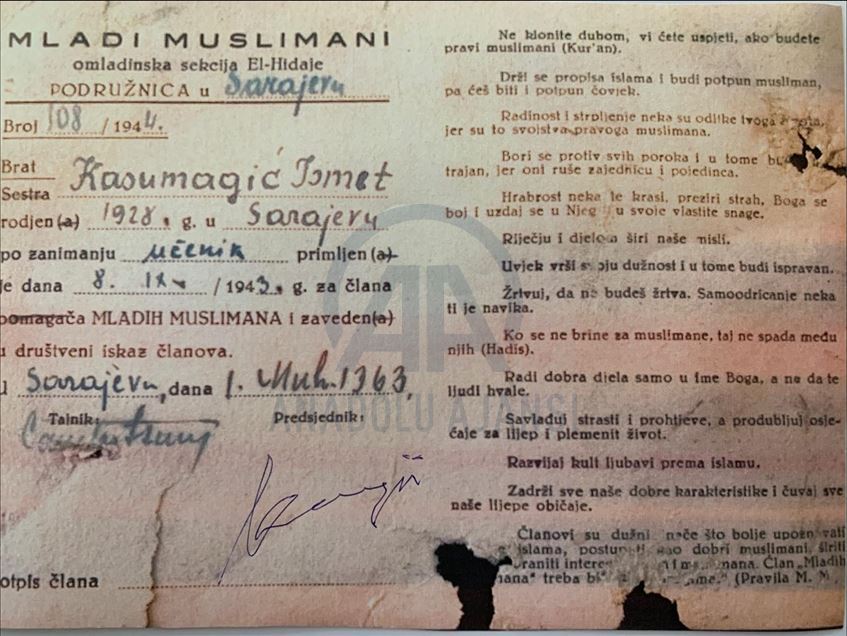 MLADI MUSLIMANI
omladinska sekcija El-Hidaje
PODRUŽNICA u Sarajevu
Broj 108 / 1944.
Brat
Sestra
Kasumagić Ismet
rodjen(a) 1928. g. u Sarajevu
po zanimanju učenik primljen (a)
je dana 8. IX / 1943. g. za člana
pomagača MLADIH MUSLIMANA i zaveden(a)
u društveni iskaz članova.
u Sarajevu, dana 1. Muh. 1363.
Tajnik: Predsjednik:
otpis člana
Ne klonite duhom, vi ćete uspjeti, ako budete
pravi muslimani (Kur'an).
Drži se propisa islama i budi potpun musliman,
pa ćeš biti i potpun čovjek.
Radinost i strpljenje neka su odlike tvoga
jer su to svojstva pravoga muslimana.
Bori se protiv svih poroka i u tome
trajan, jer oni ruše zajednicu i pojedinca.
Hrabrost neka te krasi, preziri strah, Boga se
boj i uzdaj se u Njeg i u svoje vlastite snage.
Riječju i djelom širi naše misli.
Uvjek vrši svoju dužnost i u tome budi ispravan.
Žrtvuj, da ne budeš žrtva. Samoodricanje neka
ti je navika.
Ko se ne brine za muslimane, taj ne spada među
njih (Hadis).
Radi dobra djela samo u ime Boga, a ne da te
ljudi hvale.
Savlađuj strasti i prohtjeve, a produbljuj osje-
ćaje za lijep i plemenit život.
Razvijaj kult ljubavi prema islamu.
Zadrži sve naše dobre karakteristike i čuvaj sve
naše lijepe običaje.
Članovi su dužni što bolje upoznavati
islama, kao dobri muslimani, širiti
treba (Pravila M. M.
AA
ANADOLU AJANSI